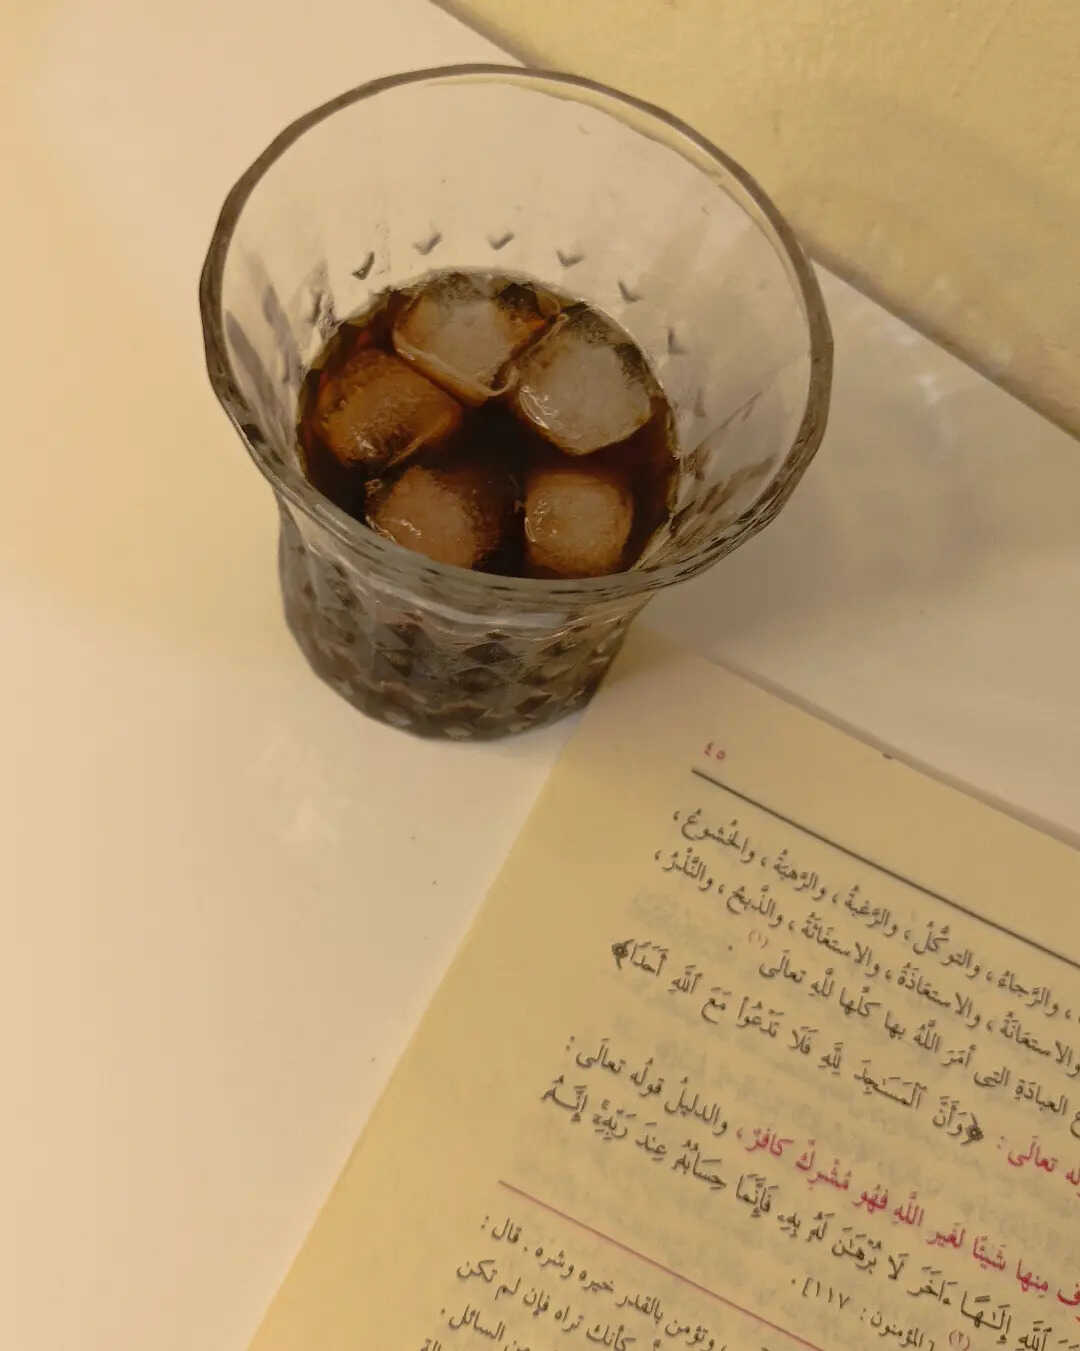 ٤٥
، والرَّجاءُ ، والتوكُّلُ ، والرَّغبةُ ، والرَّهبَةُ ، والخُشوعُ ،
والاستعَانَةُ ، والاستعَاذَةُ ، والاستغَاثَةُ ، والذَّبحُ ، والنَّذْرُ ،
العبادَةِ التي أمَرَ اللَّهُ بها كلُّها للَّهِ تعالَى (١) .
تعالَى : ﴿وَأَنَّ ٱلْمَسَٰجِدَ لِلَّهِ فَلَا تَدْعُوا۟ مَعَ ٱللَّهِ أَحَدًا﴾
مِنها شَيئًا لغَيرِ اللَّهِ فهُو مُشْرِكٌ كافرٌ ، والدليلُ قولُه تعالَى :
ٱللَّهِ إِلَٰهًا ءَاخَرَ لَا بُرْهَٰنَ لَهُۥ بِهِۦ فَإِنَّمَا حِسَابُهُۥ عِندَ رَبِّهِۦٓ ۚ إِنَّهُۥ
المؤمنون : ١١٧] .
(٢)
وتؤمن بالقدر خيره وشره . قال :
كأنك تراه فإن لم تكن
السائل .